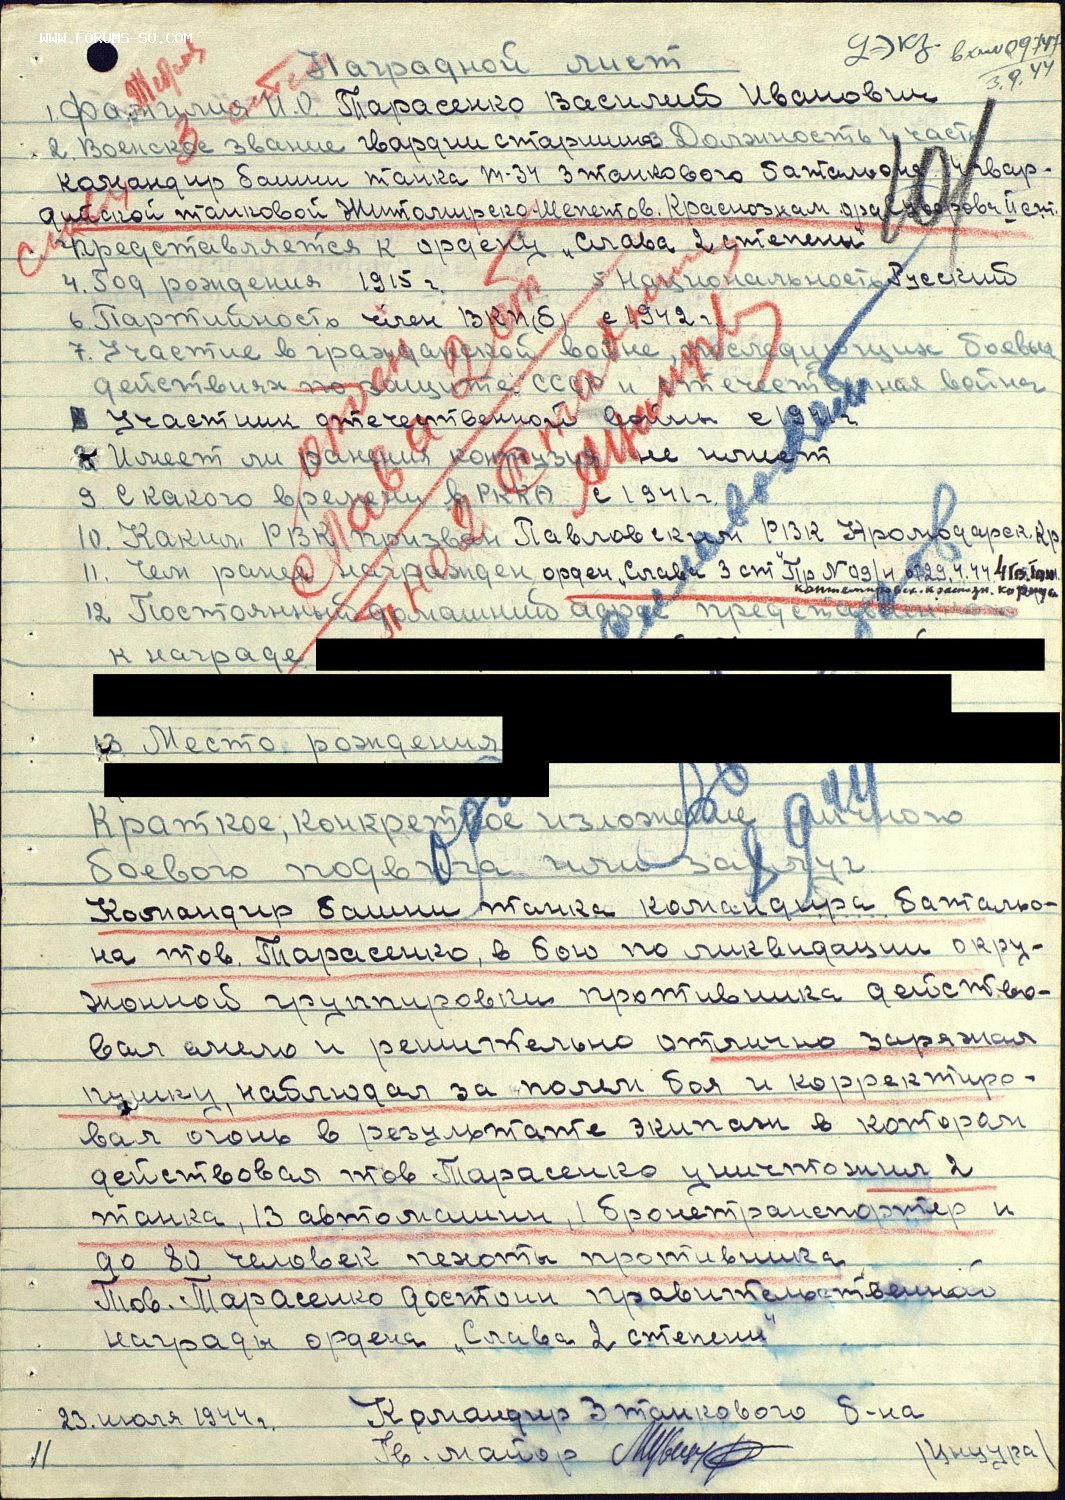 WWW.FORUMS-SU.COM
Наградной лист
1. Фамилия И.О. Тарасенко Василий Иванович
2. Военское звание гвардии старшина 3 Должность и часть
командир башни танка Т-34 3 танкового батальона 14 гвар-
дейской танковой Житомирско-Шепетов. Краснознам орд. Суворова II ст.
Представляется к ордену „Слава 2 степени"
4. Год рождения 1915 г. 5 Национальность Русский
6. Партийность член ВКП(б) с 1942 г.
7. Участие в гражданской войне, последующих боевых
действиях по защите СССР и отечественная война
Участник отечественной войны с 1941 г
Имеет ли ранения контузия не имеет
9. С какого времени в РККА с 1941 г.
10. Каким РВК призван Павловским РВК Кр.
11. Чем ранее награжден орден „Слава 3 ст" Пр N 09/н от 29.4.44 4 Гв. Тан.
корпуса
12 Постоянный домашний адрес
к награде
13. Место рождения
Краткое, конкретное изложение личного
боевого подвига или заслуг.
Командир башни танка командира баталью-
на тов. Тарасенко, в бою по ликвидации окру-
жонной группировки противника действо-
вал смело и решительно отлично заряжал
пушку, наблюдал за полем боя и корректиро-
вал огонь в результате экипаж в котором
действовал тов. Тарасенко уничтожил 2
танка, 13 автомашин, 1 бронетранспортер и
до 80 человек пехоты противника
Тов. Тарасенко достоин правительственной
награды ордена „Слава 2 степени"
23. июля 1944 г. Командир 3 танкового б-на
Гв. майор /Цнцура/
орден
Слава
2 ст
3.9.44